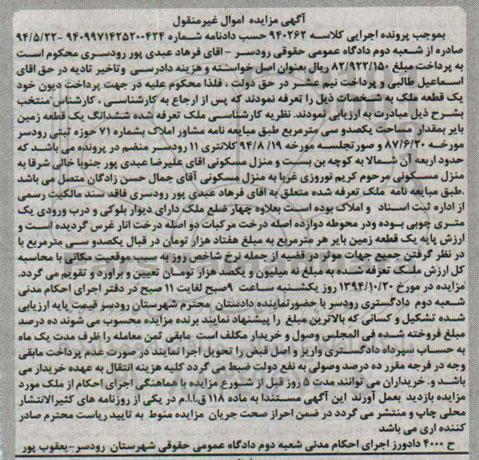 آگهی مزایده اموال غیرمنقول
بموجب پرونده اجرایی کلاسه ۹۴۰۲۶۲ حسب دادنامه شماره ۹۴۰۹۹۷۱۴۲۵۲۰۰۴۲۴ -۹۴/۵/۲۲
صادره از شعبه دوم دادگاه عمومی حقوقی رودسر - اقای فرهاد عبدی پور رودسری محکوم است
به پرداخت مبلغ ۸۲/۹۲۲/۱۵۰ ریال بعنوان اصل خواسته و هزینه دادرسی وتاخیر تادیه در حق اقای
اسماعیل طالبی و پرداخت نیم عشر در حق دولت ، فلذا محکوم علیه در جهت پرداخت دیون خود
یک قطعه ملک به مشخصات ذیل را تعرفه نمودند که پس از ارجاع به کارشناسی ، کارشناس منتخب
بشرح ذیل مبادرت به ارزیابی نمودند. نظریه کارشناسی ملک تعرفه شده ششدانگ یک قطعه زمین
بایر بمقدار مساحت یکصدو سی مترمربع طبق مبایعه نامه مشاور املاک بشماره ۷۱ حوزه ثبتی رودسر
مورخه ۸۷/۶/۲۰ و صورتجلسه مورخه ۹۴/۸/۱۹ کلانتری ۱۱ رودسر منضم در پرونده می باشد که
حدود اربعه آن شمالا به کوچه بن بست و منزل مسکونی اقای علیرضا عبدی پور جنوبا خالی شرقا به
منزل مسکونی مرحوم کریم نوروزی غربا به منزل مسکونی آقای جمال حسن زادگان متصل می باشد
.طبق مبایعه نامه ملک تعرفه شده متعلق به اقای فرهاد عبدی پور رودسری فاقد سند مالکیت رسمی
از اداره ثبت اسناد و املاک بوده است بعلاوه چهار ضلع ملک دارای دیوار بلوکی و درب ورودی یک
متری چوبی بوده ودر محوطه دوازده اصله درخت مرکبات دو اصله درخت انار غرس گردیده است و
ارزش پایه یک قطعه زمین بایر هر مترمربع به مبلغ هفتاد هزار تومان در قبال یکصدو سی مترمربع با
در نظر گرفتن جمیع جهات موثر در قضیه از جمله نرخ شاخص روز به سبب موقعیت مکانی با محاسبه
کل ارزش ملک تعرفه شده به مبلغ نه میلیون و یکصد هزار تومان تعیین و براورد و تقویم می گردد.
مزایده در مورخ ۱۳۹۴/۱۰/۲۰ روز یکشنبه ساعت ۹صبح لغایت ۱۱ صبح در دفتر اجرای احکام مدنی
شعبه دوم دادگستری رودسر با حضورنماینده دادستان محترم شهرستان رودسر قیمت پایه ارزیابی
شده تشکیل و کسانی که بالاترین مبلغ را پیشنهاد نمایند برنده مزایده محسوب می شوند ده درصد
مبلغ فروخته شده فی المجلس وصول و خریدار مکلف است مابقی ثمن معامله را ظرف مدت یک ماه
به حساب سپرداه دادگستری واریز و اصل قبض را تحویل اجرا نمایند در صورت عدم پرداخت مابقی
وجه در فرجه مقرر ده درصد وصولی به نفع دولت ضبط می گردد کلیه هزینه انتقال به عهده خریدار می
باشد و. خریداران می توانند مدت ۵ روز قبل از شروع مزایده با هماهنگی اجرای احکام از ملک مورد
مزایده بازدید بعمل آورند این آگهی مستندا به ماده ۱۱۸ ق.ا.ا.م در یکی از روزنامه های کثیرالانتشار
محلی چاپ و منتشر می گردد در ضمن احراز صحت جریان مزایده منوط به تایید ریاست محترم صادر
کننده اری می باشد
ح ۴۰۰۰ دادورز اجرای احکام مدنی شعبه دوم دادگاه عمومی حقوقی شهرستان رودسر-یعقوب پور